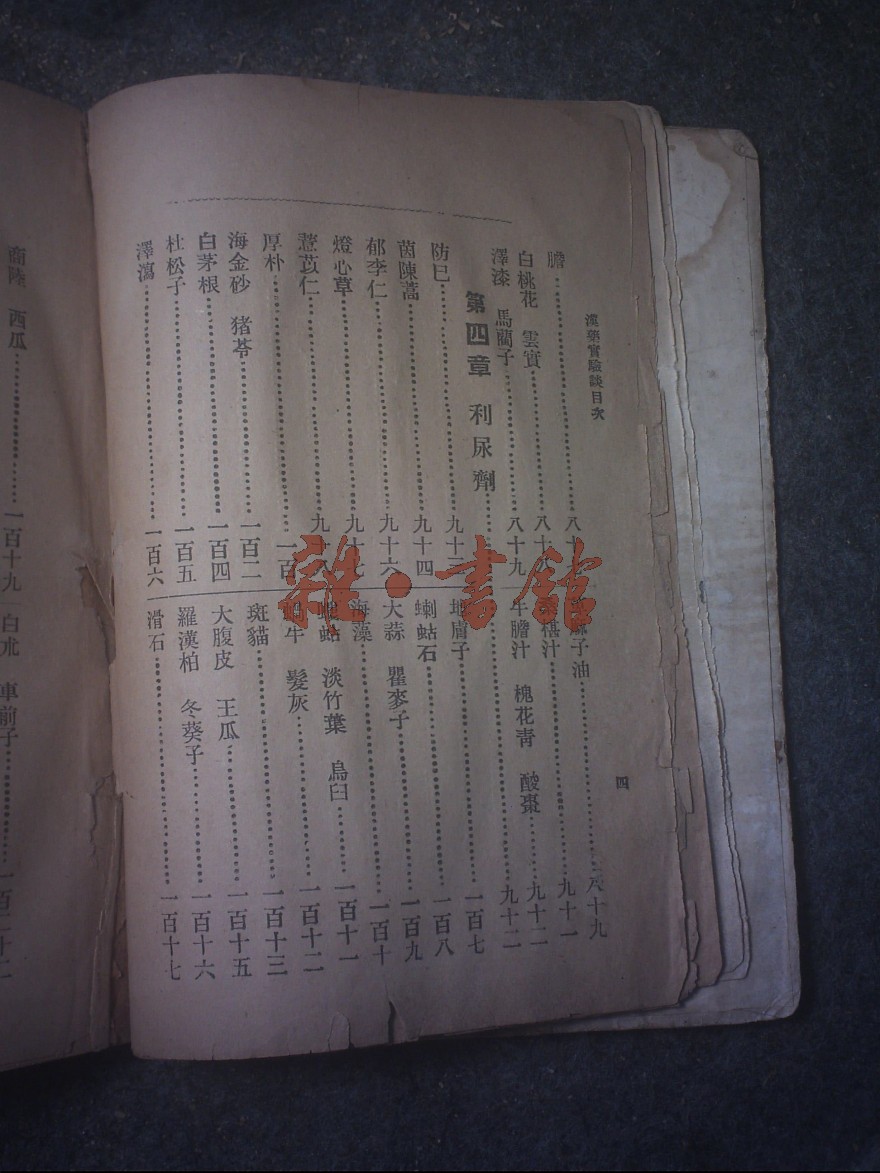 漢藥實驗談目次
四
膽
白桃花 雲實 八十八
澤漆 馬藺子 八十九
第四章 利尿劑
防巳
茵陳蒿 九十四
郁李仁 九十六
燈心草 九十七
薏苡仁 九十八
厚朴 一百
海金砂 猪苓 一百二
白茅根 一百四
杜松子 一百五
澤瀉 一百六
麻子油 八十九
椹汁 九十一
牛膽汁 槐花青 酸棗 九十二
九十二
地膚子 一百七
蝲蛄石 一百八
大蒜 瞿麥子 一百九
海藻 一百十
螻蛄 淡竹葉 烏臼 一百十一
蝸牛 髮灰 一百十二
斑貓 一百十三
大腹皮 王瓜 一百十五
羅漢柏 冬葵子 一百十六
滑石 一百十七
商陸 西瓜 一百十九
白朮 車前子
雜·書館